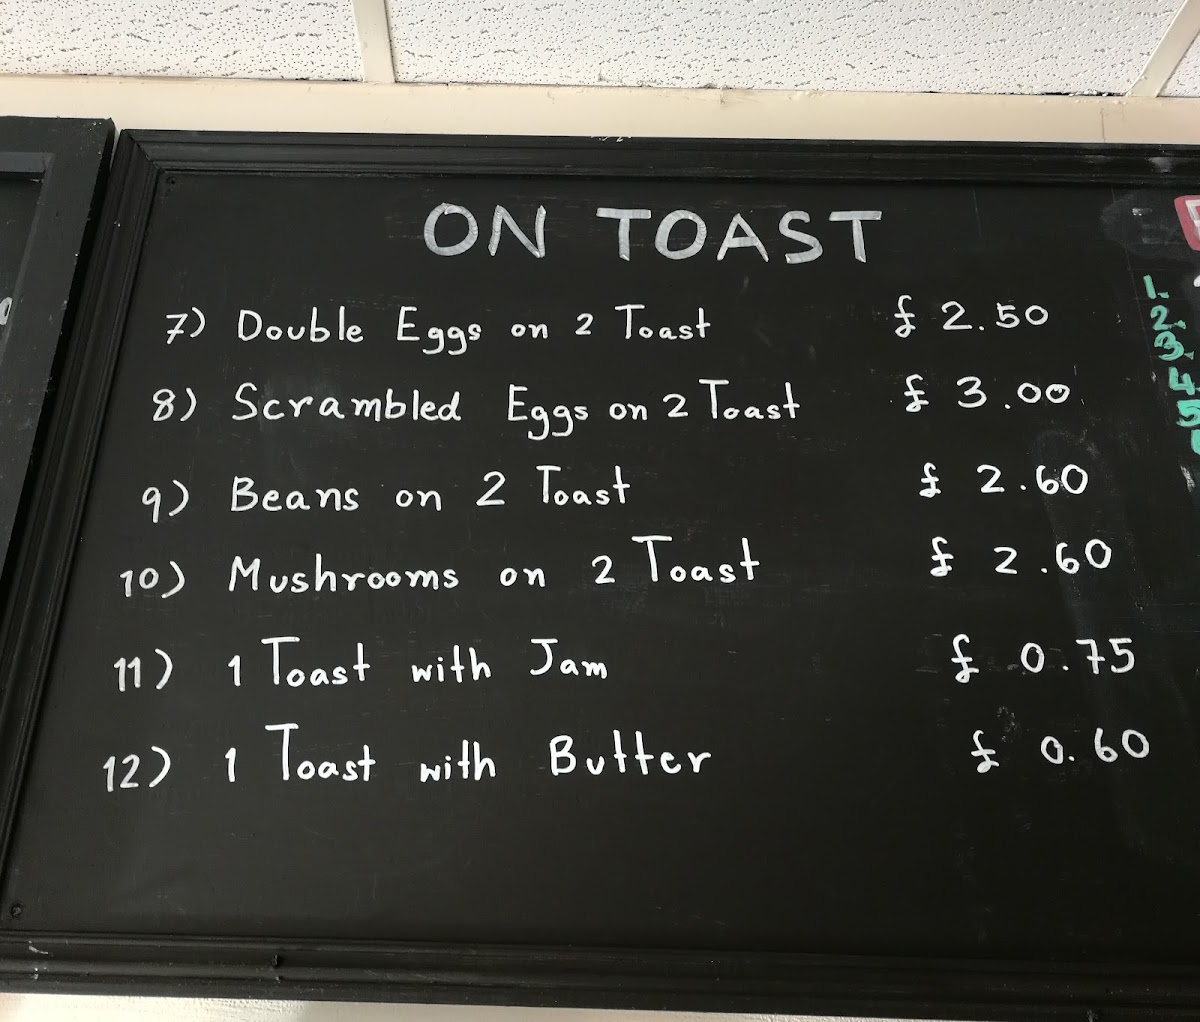 ON TOAST
7) Double Eggs on 2 Toast £ 2.50
8) Scrambled Eggs on 2 Toast £ 3.00
9) Beans on 2 Toast £ 2.60
10) Mushrooms on 2 Toast £ 2.60
11) 1 Toast with Jam £ 0.75
12) 1 Toast with Butter £ 0.60
1.
2.
3.
4.
5